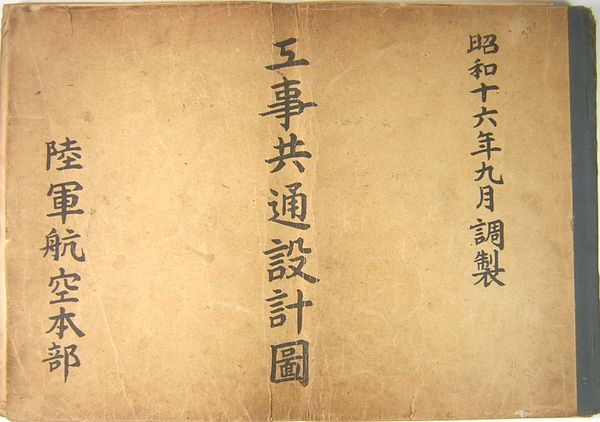 昭和十六年九月調製
工事共通設計圖
陸軍航空本部